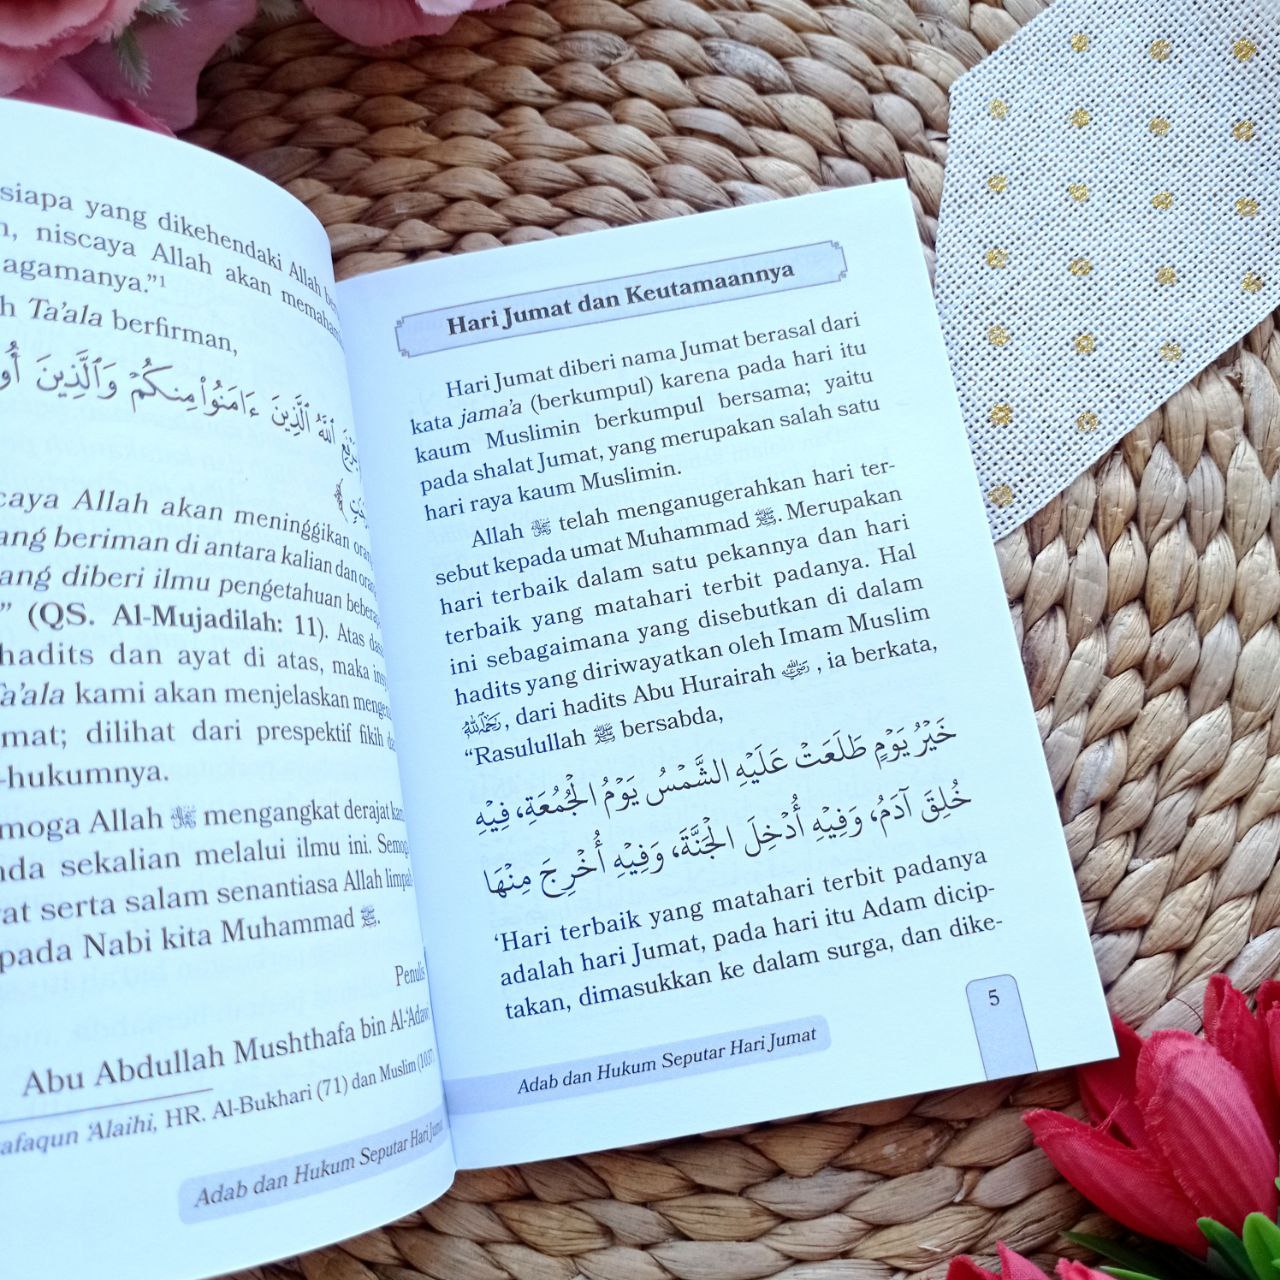 siapa yang dikehendaki Allah
niscaya Allah akan
agamanya.”¹
Ta’ala berfirman,
ٱللَّهُ ٱلَّذِينَ ءَامَنُوا۟ مِنكُمْ وَٱلَّذِينَ
Allah akan meninggikan
beriman di antara kalian dan
diberi ilmu pengetahuan
” (QS. Al-Mujadilah: 11). Atas
hadits dan ayat di atas, maka
Ta’ala kami akan menjelaskan
dilihat dari prespektif fikih
-hukumnya.
Allah ﷻ mengangkat derajat
sekalian melalui ilmu ini.
serta salam senantiasa Allah
Nabi kita Muhammad ﷺ.
Penulis
Abu Abdullah Mushthafa bin Al-‘Adawi
‘Alaihi, HR. Al-Bukhari (71) dan Muslim (1037
Adab dan Hukum Seputar Hari Jumat
Hari Jumat dan Keutamaannya
Hari Jumat diberi nama Jumat berasal dari
kata jama’a (berkumpul) karena pada hari itu
kaum Muslimin berkumpul bersama; yaitu
pada shalat Jumat, yang merupakan salah satu
hari raya kaum Muslimin.
Allah ﷻ telah menganugerahkan hari ter-
sebut kepada umat Muhammad ﷺ. Merupakan
hari terbaik dalam satu pekannya dan hari
terbaik yang matahari terbit padanya. Hal
ini sebagaimana yang disebutkan di dalam
hadits yang diriwayatkan oleh Imam Muslim
رحمه الله, dari hadits Abu Hurairah رضي الله عنه, ia berkata,
“Rasulullah ﷺ bersabda,
خَيْرُ يَوْمٍ طَلَعَتْ عَلَيْهِ الشَّمْسُ يَوْمُ الْجُمُعَةِ، فِيْهِ
خُلِقَ آدَمُ، وَفِيْهِ أُدْخِلَ الْجَنَّةَ، وَفِيْهِ أُخْرِجَ مِنْهَا
‘Hari terbaik yang matahari terbit padanya
adalah hari Jumat, pada hari itu Adam dicip-
takan, dimasukkan ke dalam surga, dan dike-
Adab dan Hukum Seputar Hari Jumat
5